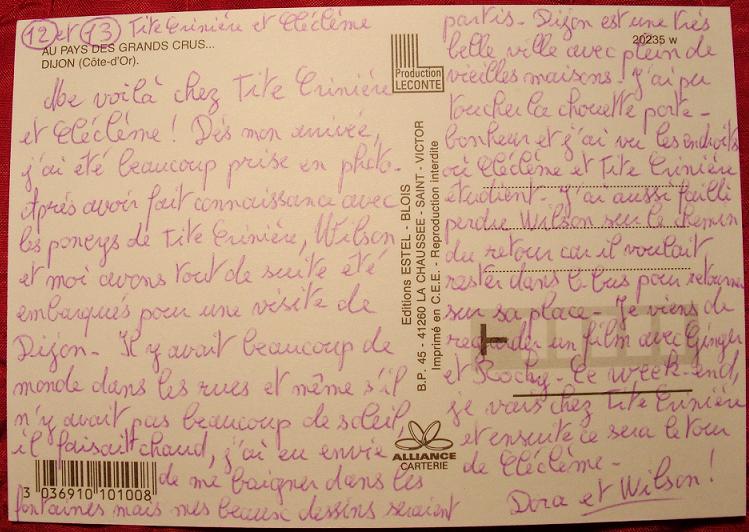 12 et 13 Tite Crinière et Cléclème
AU PAYS DES GRANDS CRUS...
DIJON (Côte-d'Or).
Me voilà chez Tite Crinière
et Cléclème ! Dès mon arrivée,
j'ai été beaucoup prise en photo.
Après avoir fait connaissance avec
les poneys de Tite Crinière, Wilson
et moi avons tout de suite été
embarqués pour une visite de
Dijon. Il y avait beaucoup de
monde dans les rues et même s'il
n'y avait pas beaucoup de soleil,
il faisait chaud, j'ai eu envie
de me baigner dans les
fontaines mais mes beaux dessins seraient
3 036910 101008
Production
LECONTE
Editions ESTEL - BLOIS
B.P. 45 - 41260 LA CHAUSSEE - SAINT - VICTOR
Imprimé en C.E.E. - Reproduction interdite
ALLIANCE
CARTERIE
20235 w
partis. Dijon est une très
belle ville avec plein de
vieilles maisons. J'ai pu
toucher la chouette porte-
bonheur et j'ai vu les endroits
où Cléclème et Tite Crinière
étudient. J'ai aussi failli
perdre Wilson sur le chemin
du retour car il voulait
rester dans le bus pour retourner
sur sa place. Je viens de
regarder un film avec Ginger
et Rocky. Ce week-end,
je vais chez Tite Crinière
et ensuite ce sera le tour
de Cléclème.
Dora et Wilson !